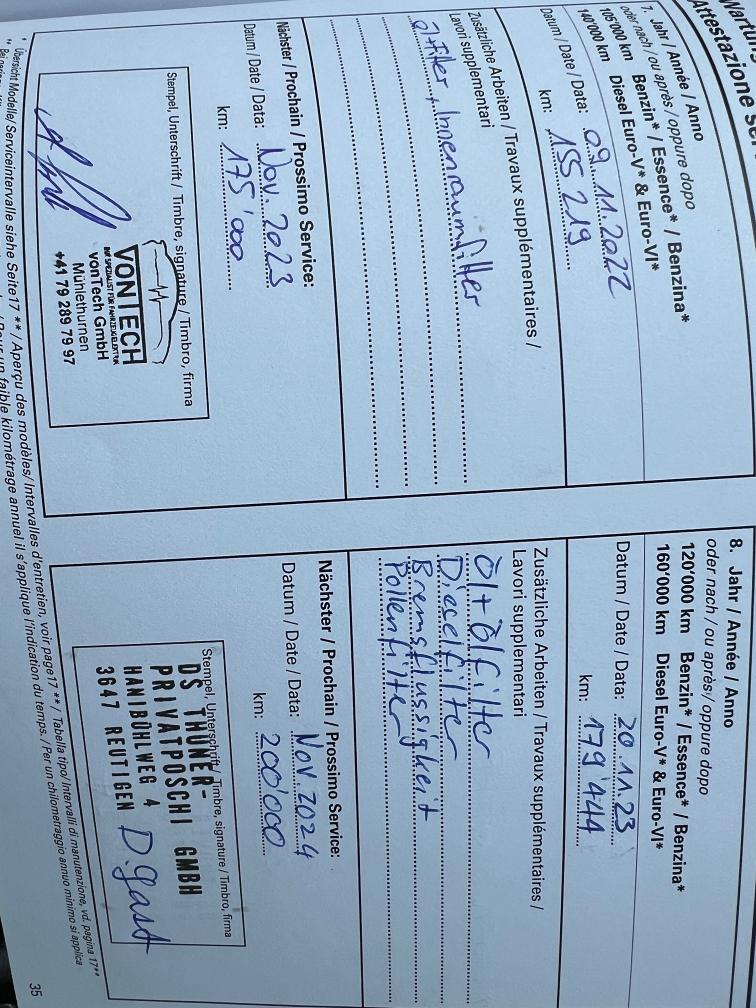 Attestazione
7. Jahr / Année / Anno
oder nach / ou après / oppure dopo
105'000 km Benzin* / Essence* / Benzina*
140'000 km Diesel Euro-V* & Euro-VI*
Datum / Date / Data: 09.11.2022
km: 155 219
Zusätzliche Arbeiten / Travaux supplémentaires /
Lavori supplementari
Ölfilter, Innenraumfilter
Nächster / Prochain / Prossimo Service:
Datum / Date / Data: Nov. 2023
km: 175'000
Stempel, Unterschrift / Timbre, signature / Timbro, firma
VONTECH
IHR SPEZIALIST FÜR FAHRZEUGELEKTRIK
vonTech GmbH
Mühlethurnen
+41 79 289 79 97
8. Jahr / Année / Anno
oder nach / ou après / oppure dopo
120'000 km Benzin* / Essence* / Benzina*
160'000 km Diesel Euro-V* & Euro-VI*
Datum / Date / Data: 20.11.23
km: 179'444
Zusätzliche Arbeiten / Travaux supplémentaires /
Lavori supplementari
Öl + Ölfilter
Dieselfilter
Bremsflüssigkeit
Pollenfilter
Nächster / Prochain / Prossimo Service:
Datum / Date / Data: Nov. 2024
km: 200'000
Stempel, Unterschrift / Timbre, signature / Timbro, firma
DS THUNER-
PRIVATPOSCHI GMBH
HANIBÜHLWEG 4
3647 REUTIGEN D. Gast
* Übersicht Modelle/ Serviceintervalle siehe Seite 17 ** / Aperçu des modèles/ Intervalles d'entretien, voir page 17 ** / Tabella tipo/ Intervalli di manutenzione, vd. pagina 17**
Pour un faible kilométrage annuel il s'applique l'indication du temps. / Per un chilometraggio annuo minimo si applica
35